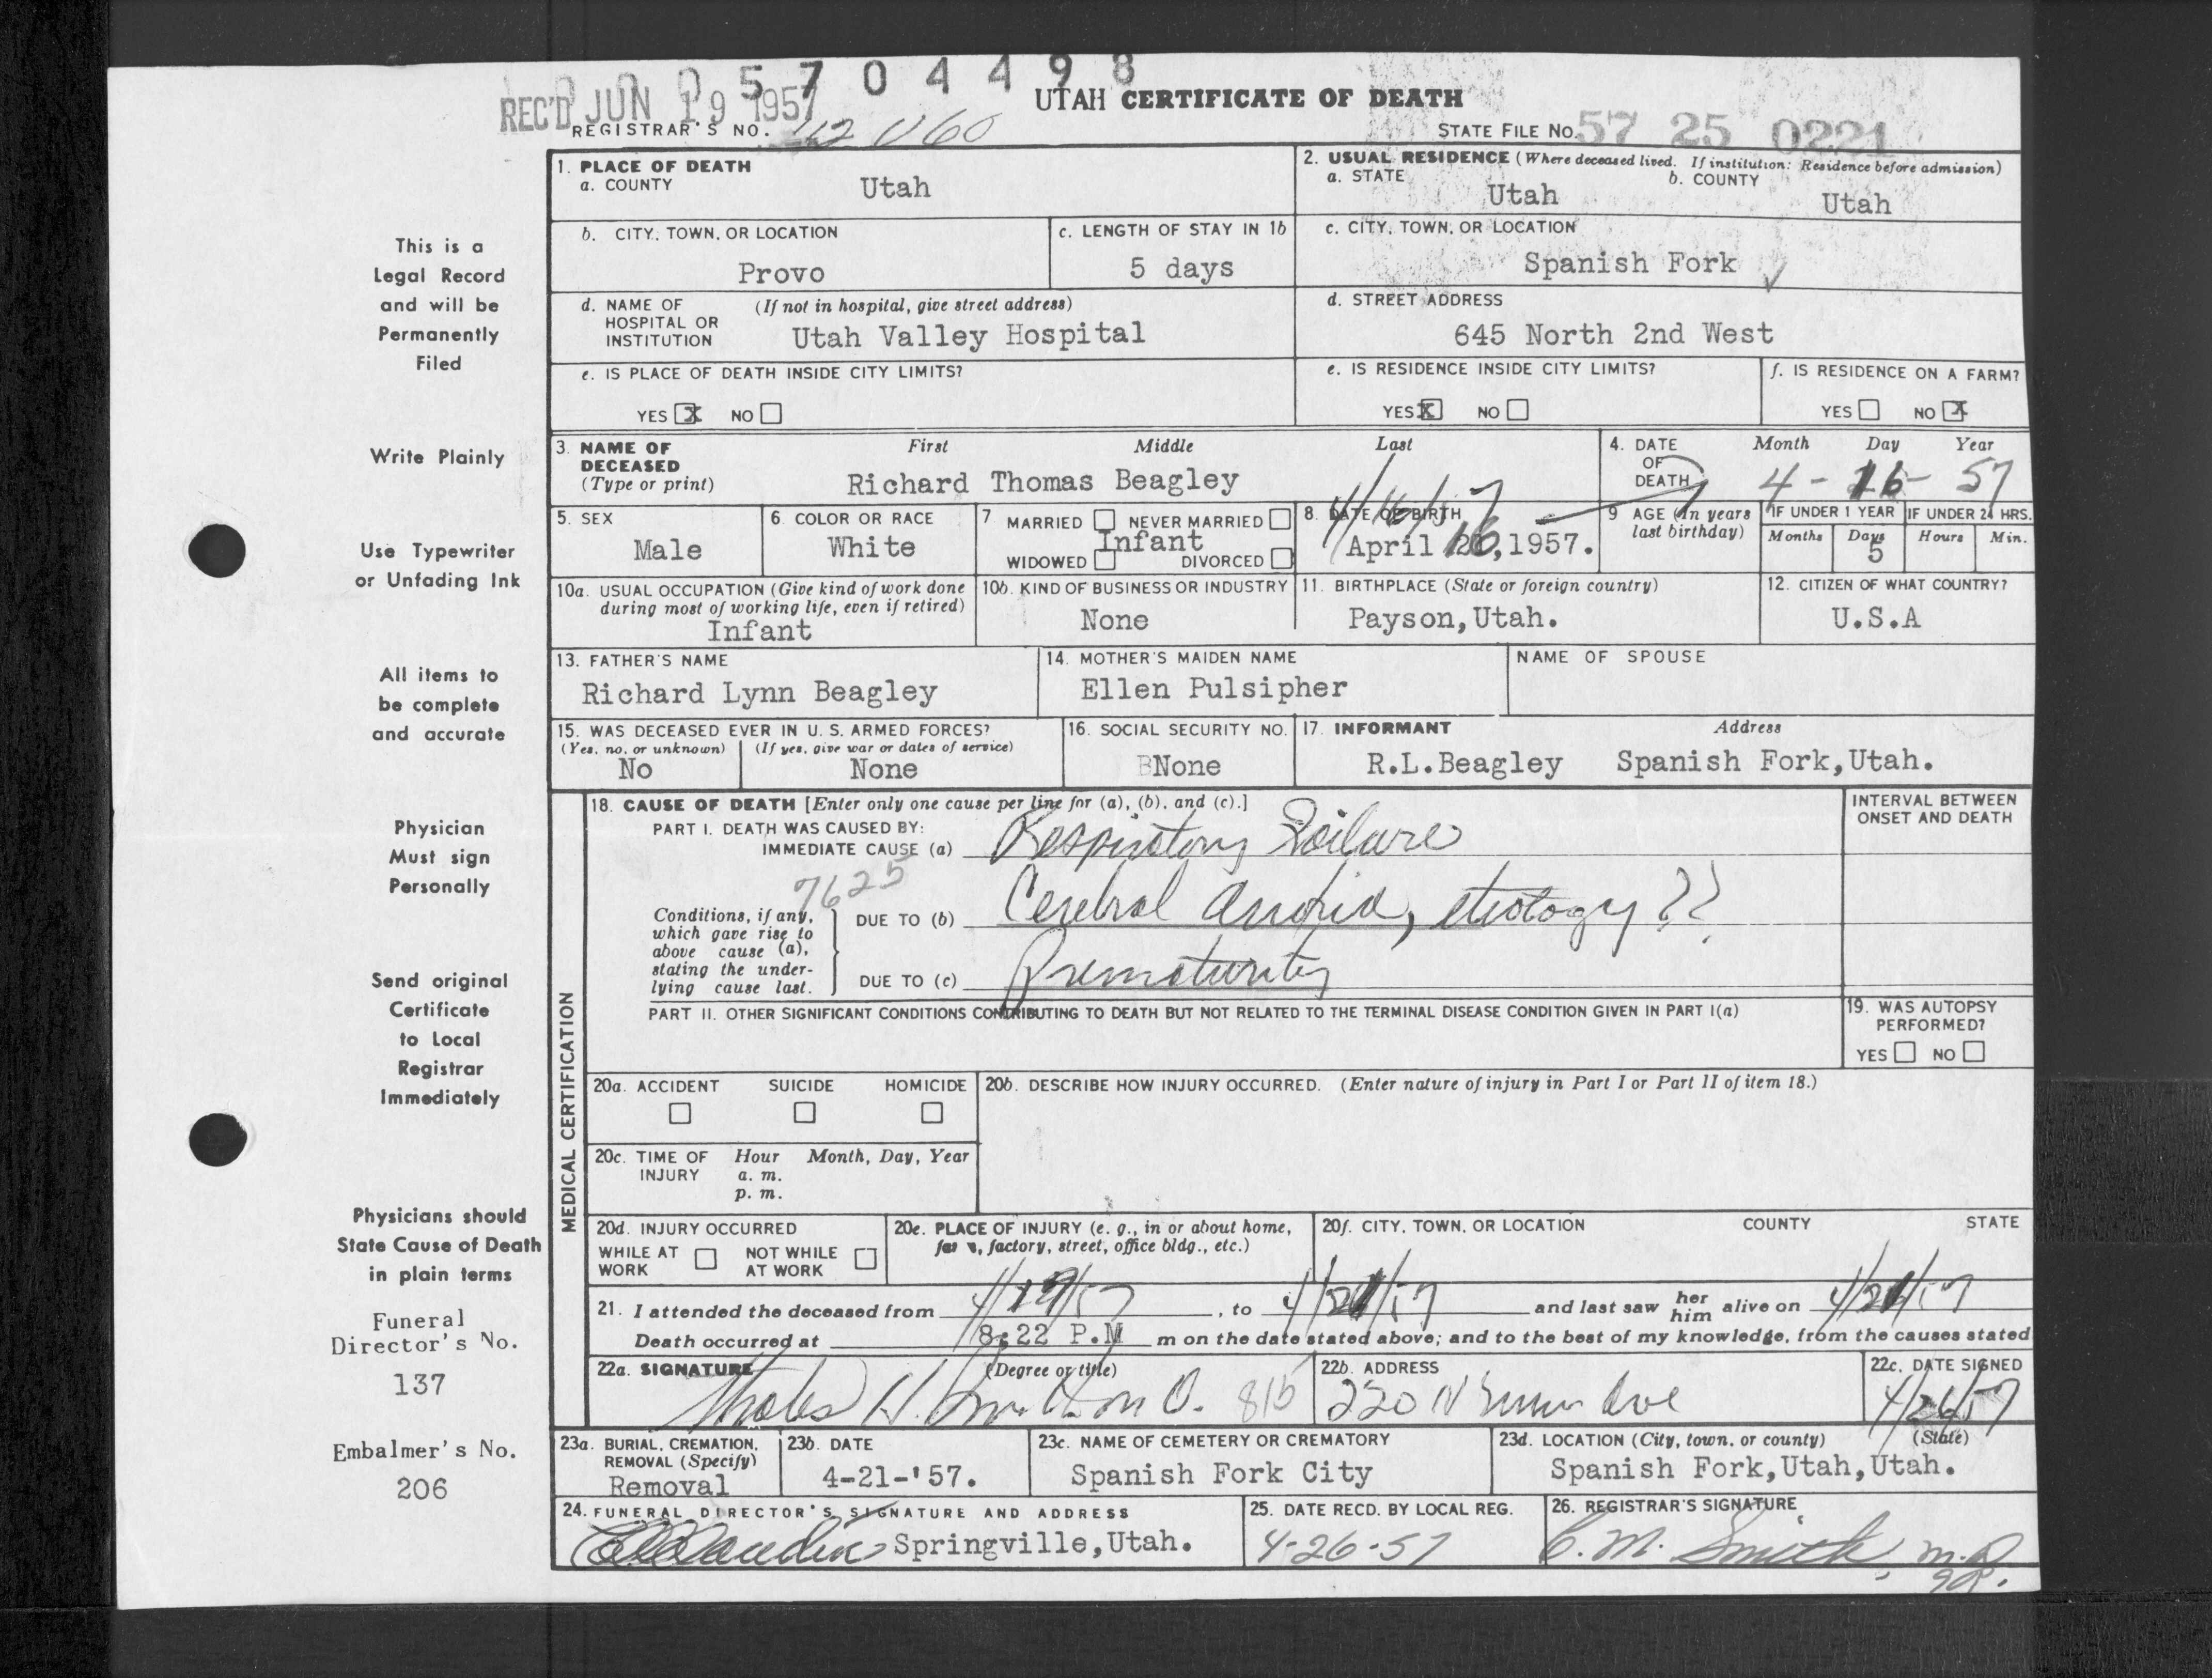 0 0 0 5 7 0 4 4 9 8
REC'D JUN 19 1957
UTAH CERTIFICATE OF DEATH
REGISTRAR'S NO.
STATE FILE NO. 57 25 0221
This is a
Legal Record
and will be
Permanently
Filed
Write Plainly
Use Typewriter
or Unfading Ink
All items to
be complete
and accurate
Physician
Must sign
Personally
Send original
Certificate
to Local
Registrar
Immediately
Physicians should
State Cause of Death
in plain terms
Funeral
Director's No.
137
Embalmer's No.
206
1. PLACE OF DEATH
a. COUNTY
Utah
2. USUAL RESIDENCE (Where deceased lived. If institution: Residence before admission)
a. STATE
Utah
b. COUNTY
Utah
b. CITY, TOWN, OR LOCATION
Provo
c. LENGTH OF STAY IN 1b
5 days
c. CITY, TOWN, OR LOCATION
Spanish Fork
d. NAME OF (If not in hospital, give street address)
HOSPITAL OR
INSTITUTION
Utah Valley Hospital
d. STREET ADDRESS
645 North 2nd West
e. IS PLACE OF DEATH INSIDE CITY LIMITS?
YES X NO
e. IS RESIDENCE INSIDE CITY LIMITS?
YES X NO
f. IS RESIDENCE ON A FARM?
YES NO X
3. NAME OF
DECEASED
(Type or print)
First Middle Last
Richard Thomas Beagley
4. DATE
OF
DEATH
Month Day Year
4 - 16 - 57
5. SEX
Male
6. COLOR OR RACE
White
7 MARRIED NEVER MARRIED
Infant
WIDOWED DIVORCED
4/16/57
8. DATE OF BIRTH
April 16, 1957.
9 AGE (In years
last birthday)
IF UNDER 1 YEAR
Months Days
5
IF UNDER 24 HRS.
Hours Min.
10a. USUAL OCCUPATION (Give kind of work done
during most of working life, even if retired)
Infant
10b. KIND OF BUSINESS OR INDUSTRY
None
11. BIRTHPLACE (State or foreign country)
Payson, Utah.
12. CITIZEN OF WHAT COUNTRY?
U.S.A
13. FATHER'S NAME
Richard Lynn Beagley
14. MOTHER'S MAIDEN NAME
Ellen Pulsipher
NAME OF SPOUSE
15. WAS DECEASED EVER IN U. S. ARMED FORCES?
(Yes, no, or unknown) (If yes, give war or dates of service)
No None
16. SOCIAL SECURITY NO.
None
17. INFORMANT Address
R.L.Beagley Spanish Fork, Utah.
MEDICAL CERTIFICATION
18. CAUSE OF DEATH [Enter only one cause per line for (a), (b), and (c).]
PART I. DEATH WAS CAUSED BY:
IMMEDIATE CAUSE (a) Respiratory Failure
7625
Conditions, if any,
which gave rise to
above cause (a),
stating the under-
lying cause last.
DUE TO (b) Cerebral anoxia, etiology ??
DUE TO (c) Prematurity
INTERVAL BETWEEN
ONSET AND DEATH
PART II. OTHER SIGNIFICANT CONDITIONS CONTRIBUTING TO DEATH BUT NOT RELATED TO THE TERMINAL DISEASE CONDITION GIVEN IN PART I(a)
19. WAS AUTOPSY
PERFORMED?
YES NO
20a. ACCIDENT SUICIDE HOMICIDE
20b. DESCRIBE HOW INJURY OCCURRED. (Enter nature of injury in Part I or Part II of item 18.)
20c. TIME OF
INJURY
Hour Month, Day, Year
a. m.
p. m.
20d. INJURY OCCURRED
WHILE AT
WORK
NOT WHILE
AT WORK
20e. PLACE OF INJURY (e. g., in or about home,
farm, factory, street, office bldg., etc.)
20f. CITY, TOWN, OR LOCATION COUNTY STATE
21. I attended the deceased from 4/19/57, to 4/21/57 and last saw her him alive on 4/21/57
Death occurred at 8:22 P.M m on the date stated above; and to the best of my knowledge, from the causes stated
22a. SIGNATURE (Degree or title)
815
22b. ADDRESS
220 N
Ave
22c. DATE SIGNED
4/26/57
23a. BURIAL, CREMATION,
REMOVAL (Specify)
Removal
23b. DATE
4-21-'57.
23c. NAME OF CEMETERY OR CREMATORY
Spanish Fork City
23d. LOCATION (City, town, or county) (State)
Spanish Fork, Utah, Utah.
24. FUNERAL DIRECTOR'S SIGNATURE AND ADDRESS
Springville, Utah.
25. DATE RECD. BY LOCAL REG.
4-26-57
26. REGISTRAR'S SIGNATURE
C. M. Smith, M.D.